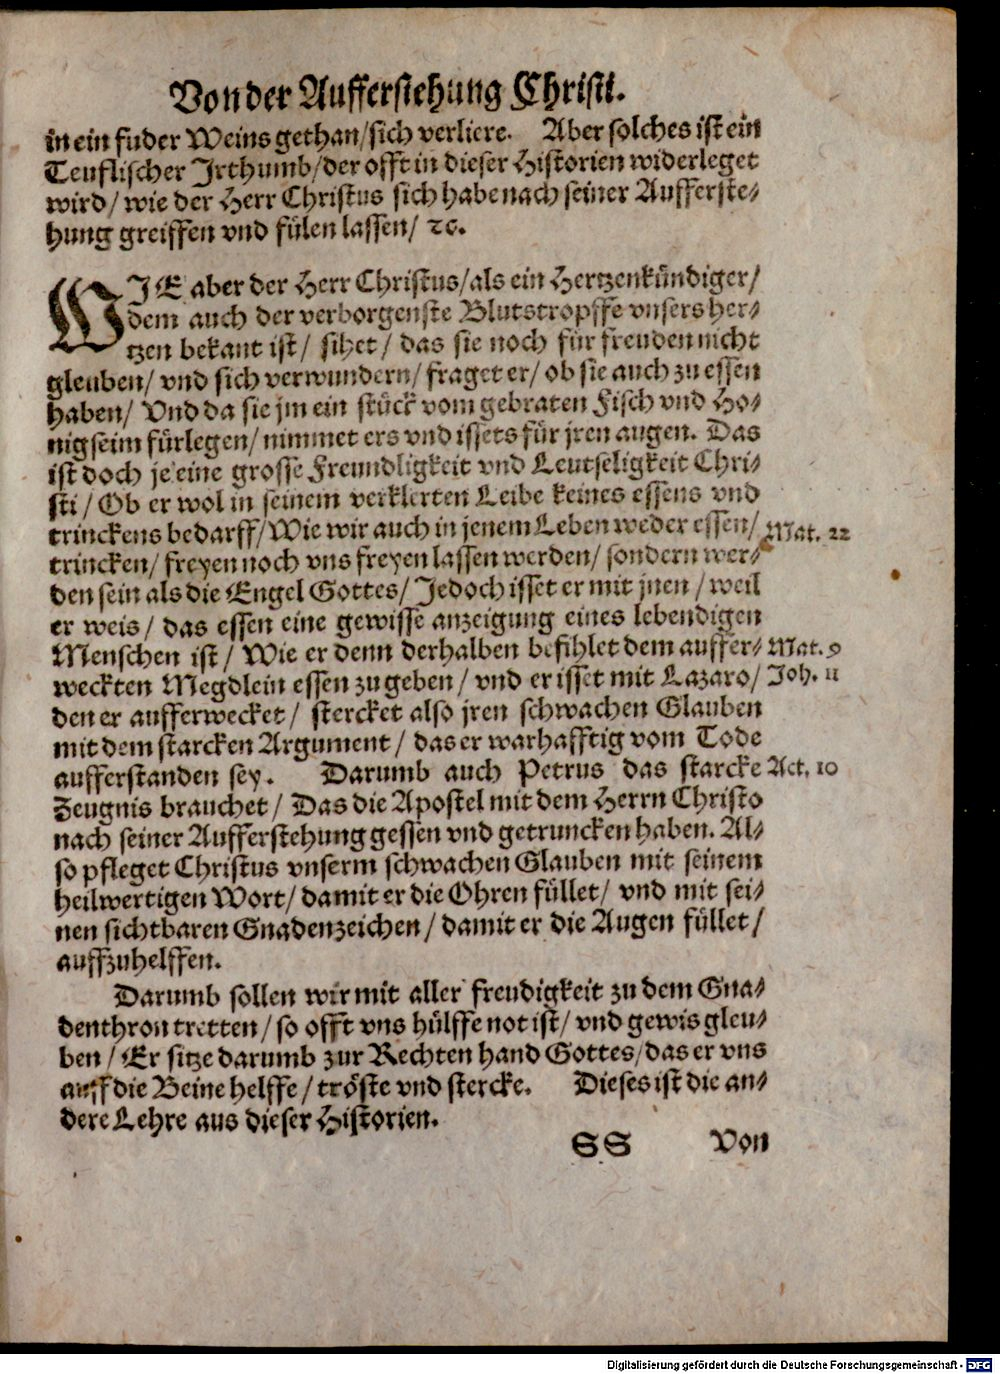 Von der Aufferstehung Christi.
in ein fuder Weins gethan/sich verliere. Aber solches ist ein
Teuflischer Irthumb/der offt in dieser Historien widerleget
wird/ wie der Herr Christus sich habe nach seiner Aufferste-
hung greiffen vnd fülen lassen/ ꝛc.
WIE aber der Herr Christus/als ein Hertzenkündiger/
dem auch der verborgenste Blutstropffe vnsers her-
tzen bekant ist/ sihet/ das sie noch für freuden nicht
gleuben/ vnd sich verwundern/ fraget er/ ob sie auch zu essen
haben/ Vnd da sie jm ein stück vom gebraten Fisch vnd Ho-
nigseim fürlegen/ nimmet ers vnd issets für jren augen. Das
ist doch je eine grosse Freundligkeit vnd Leutseligkeit Chri-
sti/ Ob er wol in seinem verklerten Leibe keines essens vnd
trinckens bedarff/Wie wir auch in jenem Leben weder essen/ Mat. 22
trincken/ freyen noch vns freyen lassen werden/ sondern wer-
den sein als die Engel Gottes/ Jedoch isset er mit jnen/ weil
er weis/ das essen eine gewisse anzeigung eines lebendigen
Menschen ist/ Wie er denn derhalben befihlet dem auffer- Mat. 9
weckten Megdlein essen zu geben/ vnd er isset mit Lazaro/ Joh. 11
den er aufferwecket/ stercket also jren schwachen Glauben
mit dem starcken Argument/ das er warhafftig vom Tode
aufferstanden sey. Darumb auch Petrus das starcke Act. 10
Zeugnis brauchet/ Das die Apostel mit dem Herrn Christo
nach seiner Aufferstehung gessen vnd getruncken haben. Al-
so pfleget Christus vnserm schwachen Glauben mit seinem
heilwertigen Wort/ damit er die Ohren füllet/ vnd mit sei-
nen sichtbaren Gnadenzeichen/ damit er die Augen füllet/
auffzuhelffen.
Darumb sollen wir mit aller freudigkeit zu dem Gna-
denthron tretten/ so offt vns hülffe not ist/ vnd gewis gleu-
ben/ Er sitze darumb zur Rechten hand Gottes/das er vns
auff die Beine helffe/ tröste vnd stercke. Dieses ist die an-
dere Lehre aus dieser Historien.
SS Von
Digitalisierung gefördert durch die Deutsche Forschungsgemeinschaft - DFG